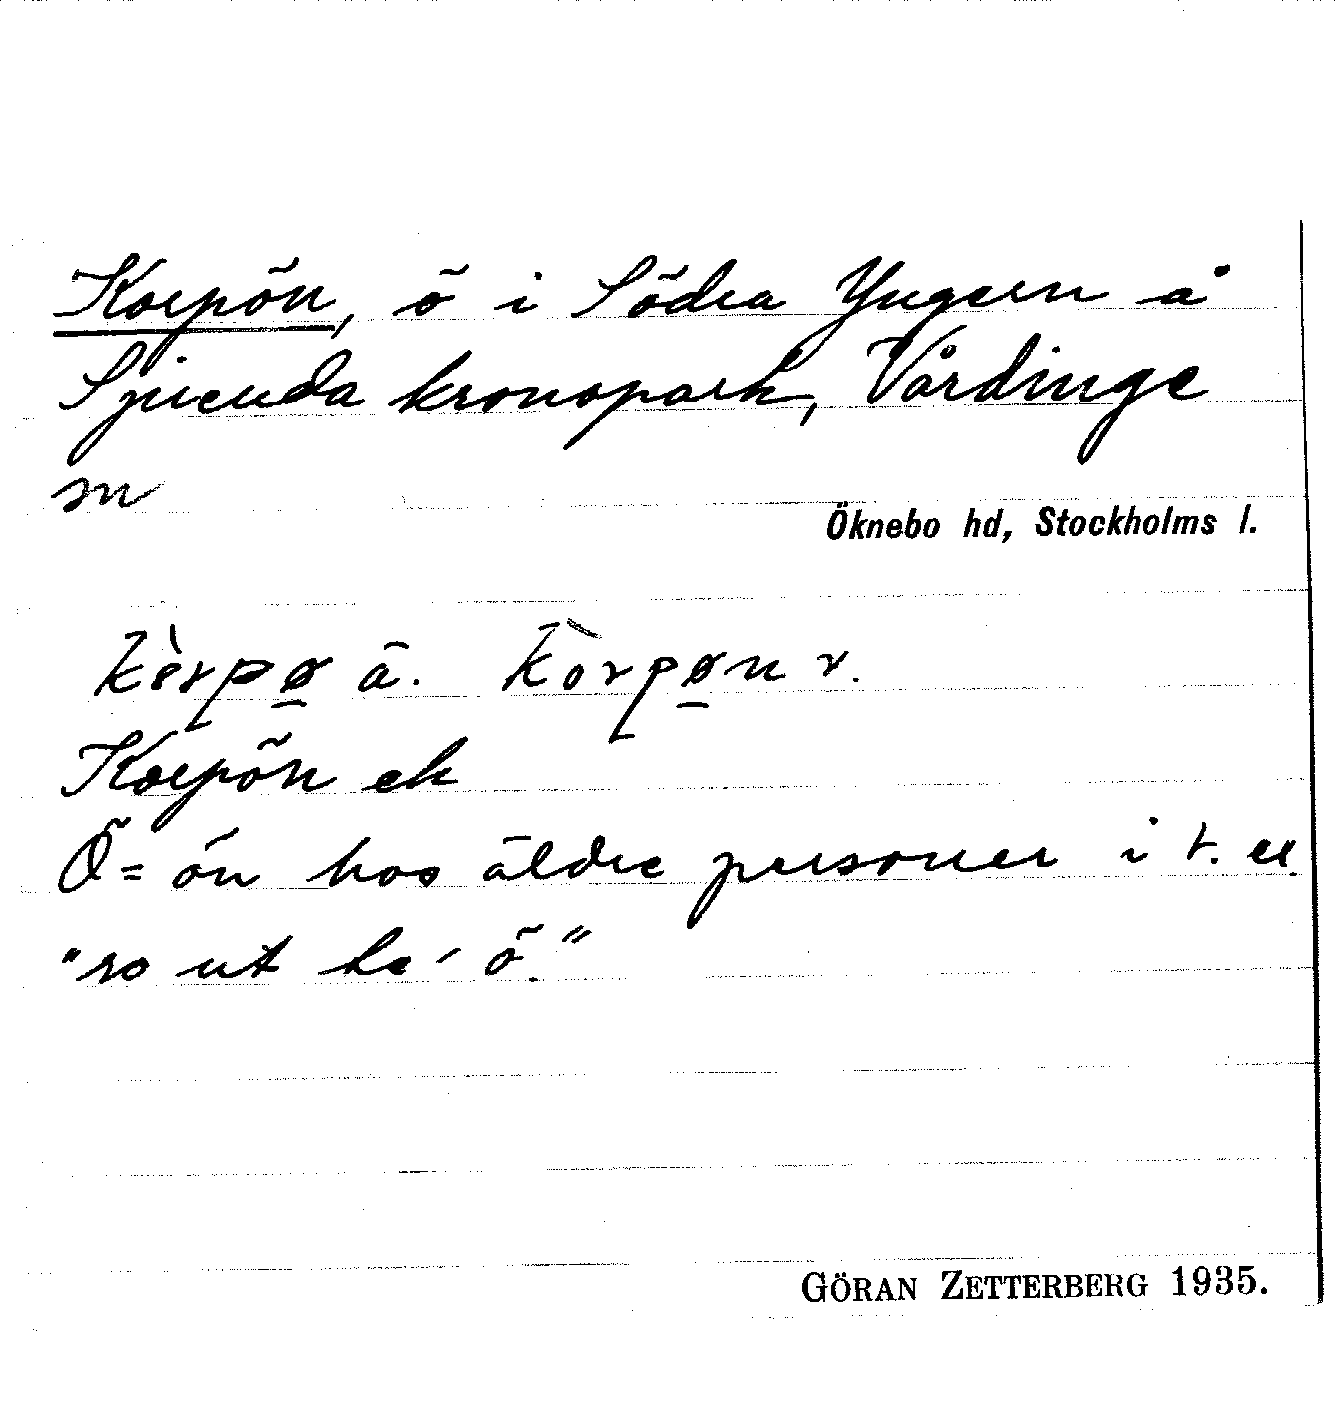 Korpön, ö i Södra Yngern å
Sjuenda kronopark, Vårdinge
sn
Öknebo hd, Stockholms l.
kò̀rpø ä. kòrpøn v.
Korpön ek
Ö = ön hos äldre personer i t. ex.
"ro ut te' ö."
GÖRAN ZETTERBERG 1935.